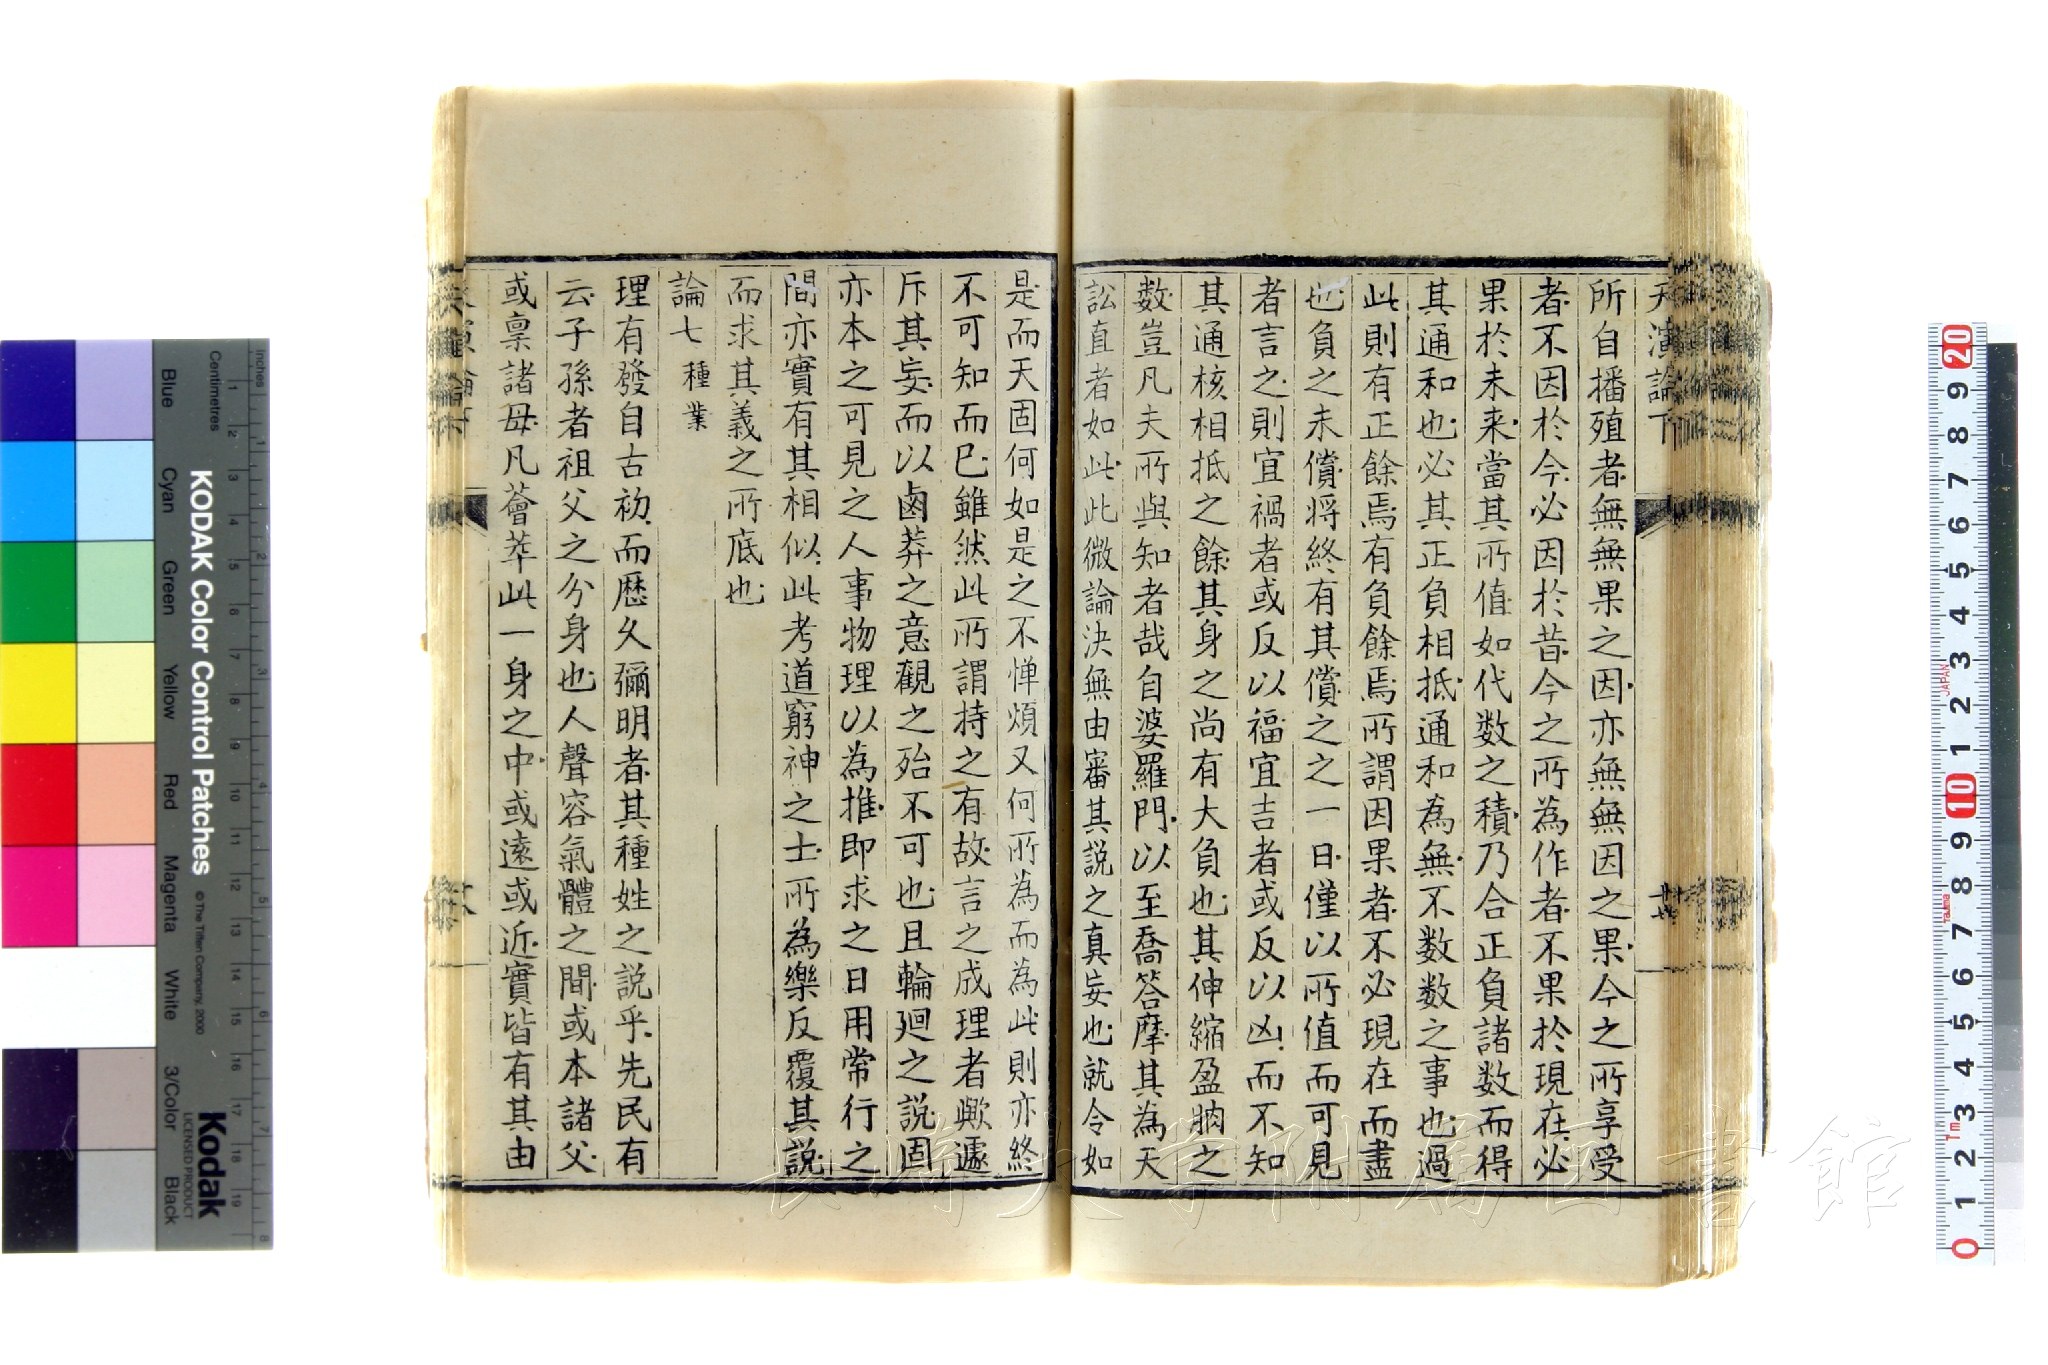 天演論下
所自播殖者無無果之因亦無無因之果今之所享受
者不因於今必因於昔今之所為作者不果於現在必
果於未來當其所值如代数之積乃合正負諸数而得
其通和也必其正負相抵通和為無不数数之事也過
此則有正餘焉有負餘焉所謂因果者不必現在而盡
也負之未償將終有其償之之一日僅以所值而可見
者言之則宜禍者或反以福宜吉者或反以凶而不知
其通核相抵之餘其身之尚有大負也其伸縮盈朒之
数豈凡夫所與知者哉自婆羅門以至喬答摩其為天
訟直者如此此微論決無由審其説之真妄也就令如
是而天固何如是之不憚煩又何所為而為此則亦終
不可知而已雖然此所謂持之有故言之成理者歟遽
斥其妄而以鹵莽之意觀之殆不可也且輪廻之説固
亦本之可見之人事物理以為推即求之日用常行之
間亦實有其相似此考道窮神之士所為樂反覆其説
而求其義之所底也
論七 種業
理有發自古初而歷久彌明者其種姓之説乎先民有
云子孫者祖父之分身也人聲容氣體之間或本諸父
或稟諸母凡薈萃此一身之中或遠或近實皆有其由
長崎大学附属図書館
KODAK Color Control Patches
© The Tiffen Company, 2000
Kodak
LICENSED PRODUCT
Inches
Centimetres
Blue
Cyan
Green
Yellow
Red
Magenta
White
3/Color
Black
1 2 3 4 5 6 7 8 9 10 11 12 13 14 15 16 17 18 19
0 1 2 3 4 5 6 7 8 9 10 1 2 3 4 5 6 7 8 9 20
JAPAN